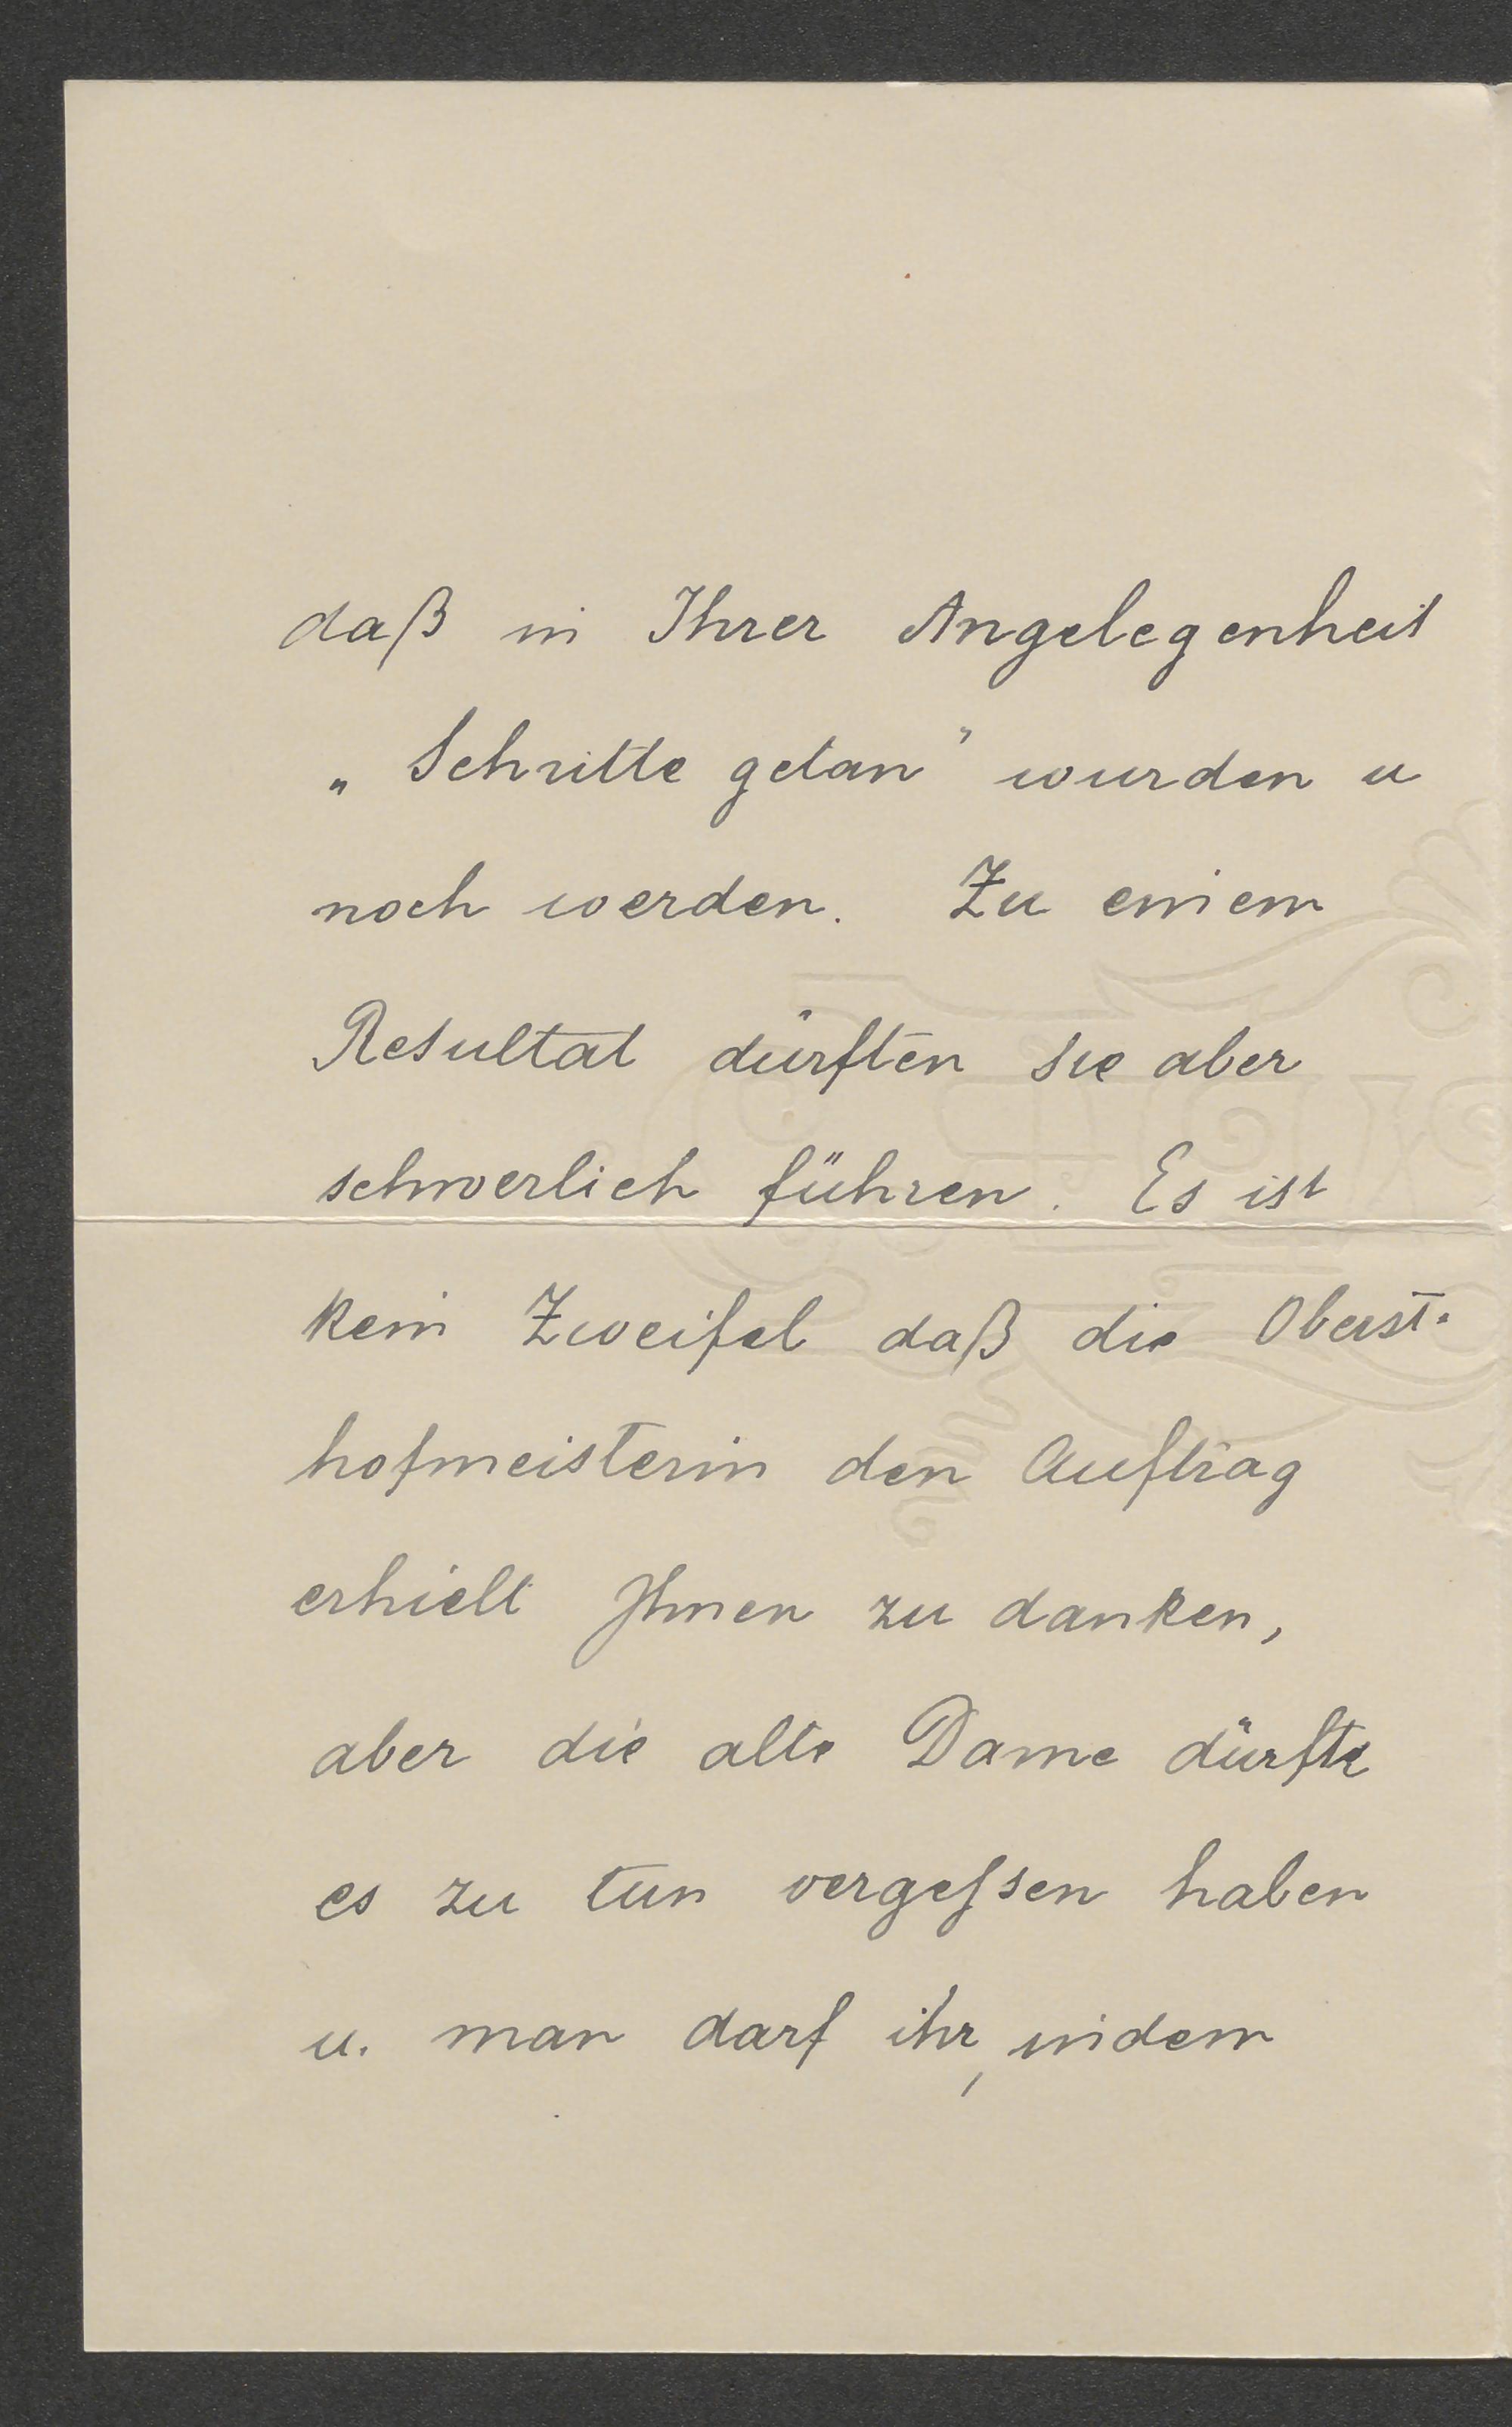 daß in Ihrer Angelegenheit
„Schritte getan" wurden u
noch werden. Zu einem
Resultat dürften sie aber
schwerlich führen. Es ist
kein Zweifel daß die Oberst-
hofmeisterin den Auftrag
erhielt Ihnen zu danken,
aber die alte Dame dürfte
es zu tun vergessen haben
u. man darf ihr, indem